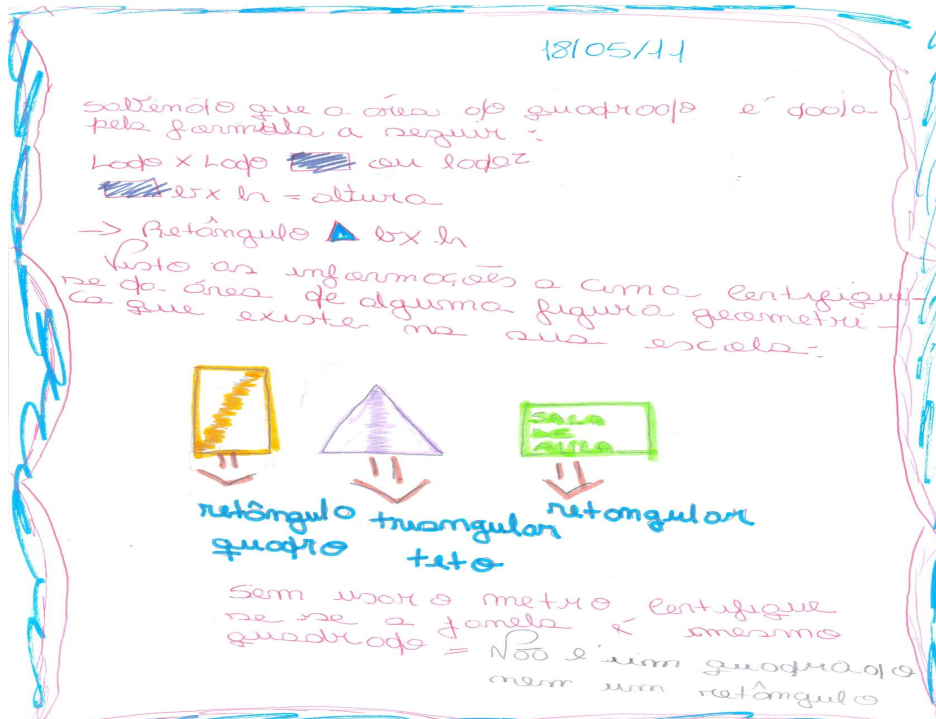 18/05/11
sabendo que a área do quadrado é dada
pela formula a seguir:
Lado x Lado ou lado²
b x h = altura
→ Retângulo b x h
Visto as informações a cima certifique-
se da área de alguma figura geometri-
ca que existe na sua escola:
SALA
DE
AULA
retângulo
quadro
triangular
teto
retangular
sem usar o metro certifique
se se a janela é mesmo
quadrado = Não é um quadrado
nem um retângulo